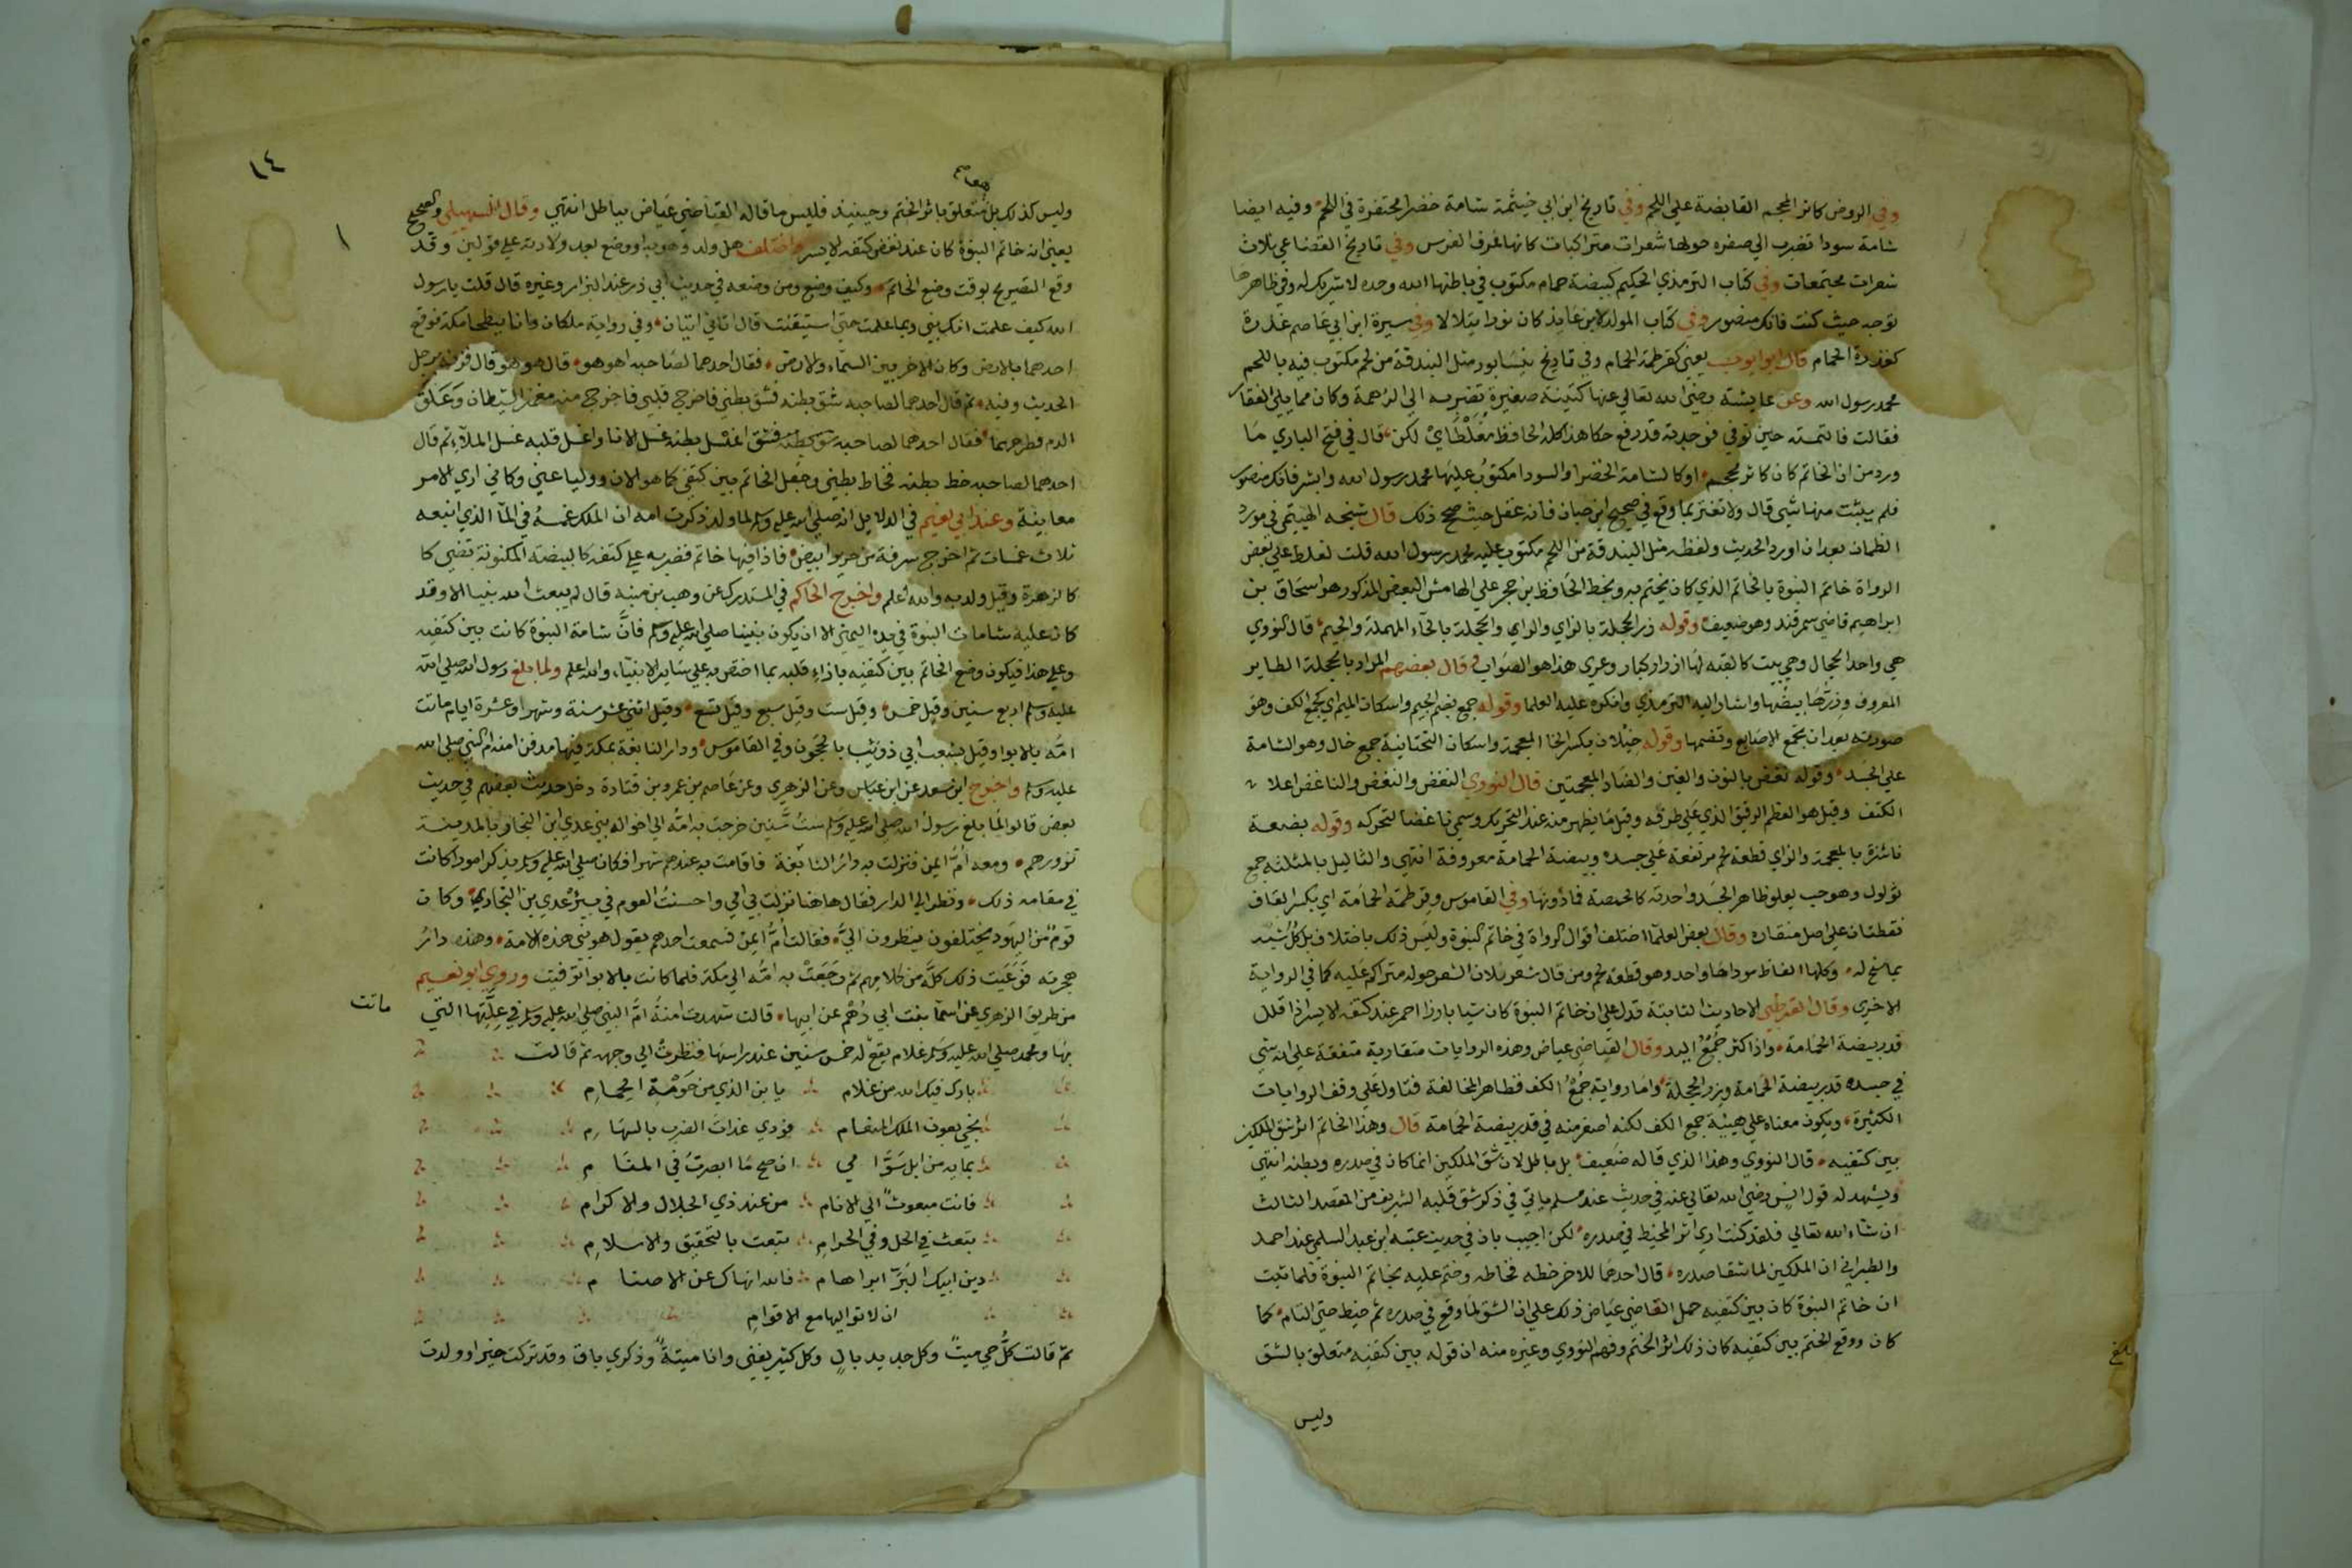 وفي الروض كاثر المحجم القابضة علي اللحم وفي تاريخ ابن ابي خيثمة شامة خضرا محتفرة في اللحم وفيه ايضا
شامة سودا تضرب الي صفره حولها شعرات متراكبات كانها عرف الفرس وفي تاريخ القضاعي ثلاث
شعرات مجتمعات وفي كتاب الترمذي الحكيم كبيضة حمام مكتوب في باطنها الله وحده لا شريك له وفي ظاهرها
توجه حيث كنت فانك منصور وفي كتاب المولد لابن عايذ كان نورا يتلالا وفي سيرة ابن ابي عاصم عذرة
كعذرة الحمام قال ابو ايوب يعني كقرطمة الحمام وفي تاريخ نيسابور مثل البندقة من لحم مكتوب فيه باللحم
محمد رسول الله وعن عايشة رضي الله تعالي عنها كتينة صغيرة تضرب الي الدهمة وكان مما يلي الفقار
فقالت فالتمسته حين توفي فوجدته قد رفع حكا هذا كله الحافظ مغلطاي لكن قال في فتح الباري ما
ورد من ان الخاتم كان كاثر محجم اوكالشامة الخضرا والسودا مكتوب عليها محمد رسول الله وابشر فانك منصور
فلم يثبت منها شي قال ولا تغتر بما وقع في صحيح ابن حبان فانه غفل حيث صحح ذلك قال شيخه الهيثمي في مورد
الظمان بعد ان اورد الحديث ولفظه مثل البندقة من اللحم مكتوب عليه محمد رسول الله قلت لغلط علي بعض
الرواة خاتم النبوة بالخاتم الذي كان يختم به وبخط الحافظ بن حجر علي الهامش البعض المذكور هو اسحاق بن
ابراهيم قاضي سمرقند وهو ضعيف وقوله زر الحجلة بالزاي والراي والحجلة بالحاء المهملة والجيم قال النووي
هي واحد الحجال وهي بيت كالقبه لها ازرار كبار وعري هذا هو الصواب وقال بعضهم المراد بالحجلة الطاير
المعروف وزرها بيضها واشار اليه الترمذي وانكره عليه العلما وقوله جمع بضم الجيم واسكان الميم اي كجمع الكف وهو
صورته بعد ان تجمع الاصابع وتضمها وقوله خيلان بكسر الخا المعجمة واسكان التحتانية جمع خال وهو الشامة
علي الجسد وقوله نغض بالنون والغين والضاد المعجمتين قال النووي النغض والنغض والناغض اعلا
الكتف وقيل هو العظم الرقيق الذي علي طرفه وقيل ما يظهر منه عند التحريك وسمي ناغضا لتحركه وقوله بضعة
ناشزة بالمعجمة والزاي قطعة لحم مرتفعة علي جسده وبيضة الحمامة معروفة انتهي والثاليل بالمثلثه جمع
ثولول وهو حب يعلو ظاهر الجسد واحدته كالحمصة فما دونها وفي القاموس وقرطمة الحمامة اي بكسر القاف
نقطتان علي اصل منقاره وقال بعض العلما اختلف اقوال الرواة في خاتم النبوة وليس ذلك باختلاف بل كل شبه
بما سنح له وكلها الفاظ موداها واحد وهو قطعة لحم ومن قال شعر فلان الشعر حوله متراكم عليه كما في الرواية
الاخري وقال القرطبي الاحاديث الثابتة تدل علي ان خاتم النبوة كان شيا بارزا احمر عند كتفه الايسر اذا قلل
قدر بيضة الحمامة واذا كثر جمع اليد وقال القاضي عياض وهذه الروايات متقاربة متفقة علي انه شي
في جسده قدر بيضة الحمامة وزر الحجلة واما رواية جمع الكف فظاهر المخالفة فتاول علي وفق الروايات
الكثيرة ويكون معناه علي هيئة جمع الكف لكنه اصغر منه في قدر بيضة الحمامة قال وهذا الخاتم اثر شق الملكين
بين كتفيه قال النووي وهذا الذي قاله ضعيف بل باطل لان شق الملكين انما كان في صدره وبطنه انتهي
ويشهد له قول انس رضي الله تعالي عنه في حديث عند مسلم ياتي في ذكر شق قلبه الشريف من المقصد الثالث
ان شاء الله تعالي فلقد كنت اري اثر المخيط في صدره لكن اجيب بان في حديث عتبه ابن عبد السلمي عند احمد
والطبراني ان الملكين لما شقا صدره قال احدهما للاخر خطه فخاطه وختم عليه بخاتم النبوة فلما ثبت
ان خاتم النبوة كان بين كتفيه حمل القاضي عياض ذلك علي ان الشق لما وقع في صدره ثم خيط حتي التام كما
كان ووقع الختم بين كتفيه كان ذلك اثر الختم وفهم النووي وغيره منه ان قوله بين كتفيه متعلق بالشق
وليس
بلغ
١٤
وليس كذلك بل متعلق باثر الختم وحينيذ فليس ما قاله القاضي عياض بباطل انتهي وقال السهيلي والصحيح
يعني انه خاتم النبوة كان عند نغض كتفه الايسر واختلف هل ولد وهو به او وضع بعد ولادته علي قولين وقد
وقع التصريح بوقت وضع الخاتم وكيف وضع ومن وضعه في حديث ابي ذر عند البزار وغيره قال قلت يا رسول
الله كيف علمت انك نبي وبما علمت حتي استيقنت قال اتاني اتيان وفي رواية ملكان وانا ببطحا مكة فوقع
احدهما بالارض وكان الاخر بين السماء والارض فقال احدهما لصاحبه اهو هو قال هو هو قال فزنه برجل
الحديث وفيه ثم قال احدهما لصاحبه شق بطنه فشق بطني فاخرج قلبي فاخرج منه مغمز الشيطان وعلق
الدم فطرحهما فقال احدهما لصاحبه شق بطنه فشق اغسل بطنه غسل الانا واغسل قلبه غسل الملاء ثم قال
احدهما لصاحبه خط بطنه فخاط بطني وجعل الخاتم بين كتفي كما هو الان ووليا عني وكاني اري الامر
معاينة وعند ابي نعيم في الدلايل انه صلي الله عليه وسلم لما ولد ذكرت امه ان الملك غمسه في الما الذي انبعه
ثلاث غمسات ثم اخرج سرقة من حرير ابيض فاذا فيها خاتم فضرب علي كتفه كالبيضة المكنونة تضي كا
كالزهرة وقيل ولد به والله اعلم واخرج الحاكم في المستدرك عن وهب بن منبه قال لم يبعث الله نبيا الا وقد
كان عليه شامات النبوة في يده اليمني الا ان يكون نبينا صلي الله عليه وسلم فان شامة النبوة كانت بين كتفيه
وعلي هذا فيكون وضع الخاتم بين كتفيه بازاء قلبه بما اختص به علي ساير الانبياء والله اعلم ولما بلغ رسول الله صلي الله
عليه وسلم اربع سنين وقيل خمس وقيل ست وقيل سبع وقيل تسع وقيل اثني عشر سنة وشهرا وعشرة ايام ماتت
امه بالابوا وقيل بشعب ابي ذويب بالحجون وفي القاموس ودار النابغة بمكة فيها مدفن امنه ام النبي صلي الله
عليه وسلم واخرج ابن سعد عن ابن عباس وعن الزهري وعن عاصم بن عمرو بن قتادة دخل حديث بعضهم في حديث
بعض قالوا لما بلغ رسول الله صلي الله عليه وسلم ست سنين خرجت به امه الي اخواله بني عدي ابن النجار بالمدينة
تزورهم ومعه ام ايمن فنزلت به دار النابغة فاقامت به عندهم شهرا فكان صلي الله عليه وسلم يذكر امورا كانت
في مقامه ذلك ونظر الي الدار فقال هاهنا نزلت بي امي واحسنت العوم في بير عدي بن النجار وكان
قوم من اليهود يختلفون ينظرون الي فقالت ام ايمن فسمعت احدهم يقول هو نبي هذه الامة وهذه دار
هجرته فوعيت ذلك كله من كلامهم ثم رجعت به امه الي مكة فلما كانت بالابوا توفيت وروي ابو نعيم
من طريق الزهري عن اسما بنت ابي رهم عن ابيها قالت شهدت امنة ام النبي صلي الله عليه وسلم في علتها التي
ماتت
بها ومحمد صلي الله عليه وسلم غلام يفع له خمس سنين عند راسها فنظرت الي وجهه ثم قالت
بارك فيك الله من غلام يا ابن الذي من حومة الحمام
نجي بعون الملك المنعام فودي غداة الضرب بالسهام
بمايه من ابل سوامي ان صح ما ابصرت في المنام
فانت مبعوث الي الانام من عند ذي الجلال والاكرام
تبعث في الحل وفي الحرام تبعث بالتحقيق والاسلام
دين ابيك البر ابراهام فالله انهاك عن الاصنام
ان لا تواليها مع الاقوام
ثم قالت كل حي ميت وكل جديد بال وكل كثير يفني وانا ميتة وذكري باق وقد تركت خيرا وولدت